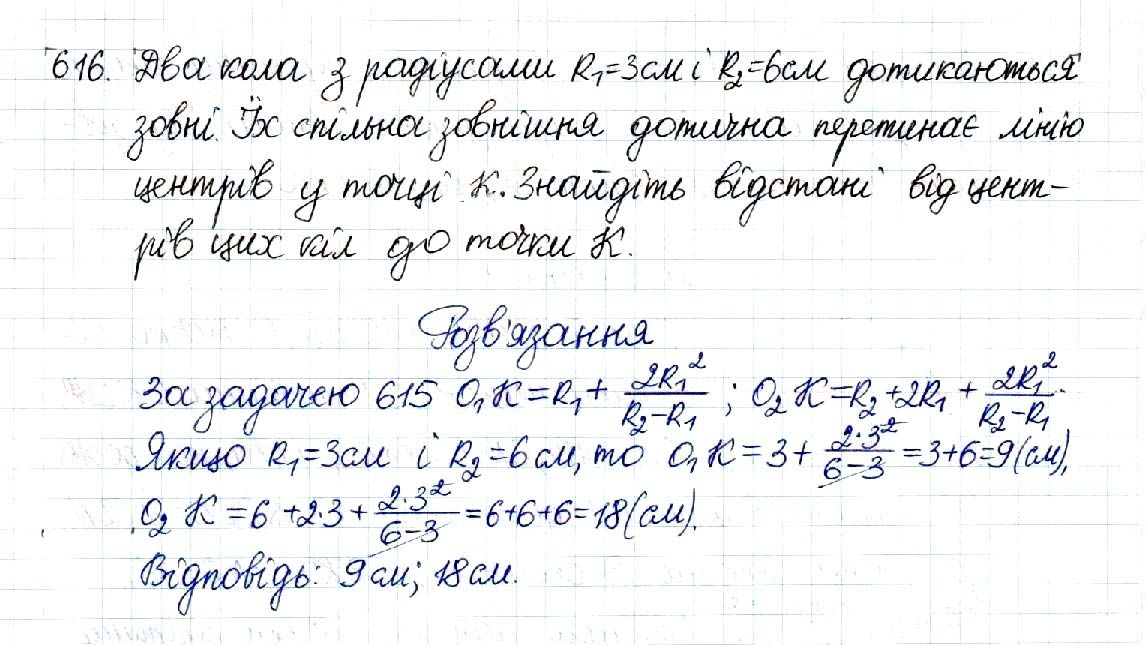 616. Два кола з радіусами R₁=3см і R₂=6см дотикаються
зовні. Їх спільна зовнішня дотична перетинає лінію
центрів у точці К. Знайдіть відстані від цент-
рів цих кіл до точки К.
Розв'язання
За задачею 615 O₁K=R₁+ \frac{2R₁²}{R₂-R₁} ; O₂K=R₂+2R₁ + \frac{2R₁²}{R₂-R₁}.
Якщо R₁=3см і R₂=6см, то O₁K=3+ \frac{2·3²}{6-3} =3+6=9(см),
O₂K=6+2·3+ \frac{2·3²}{6-3} =6+6+6=18(см).
Відповідь: 9см; 18см.